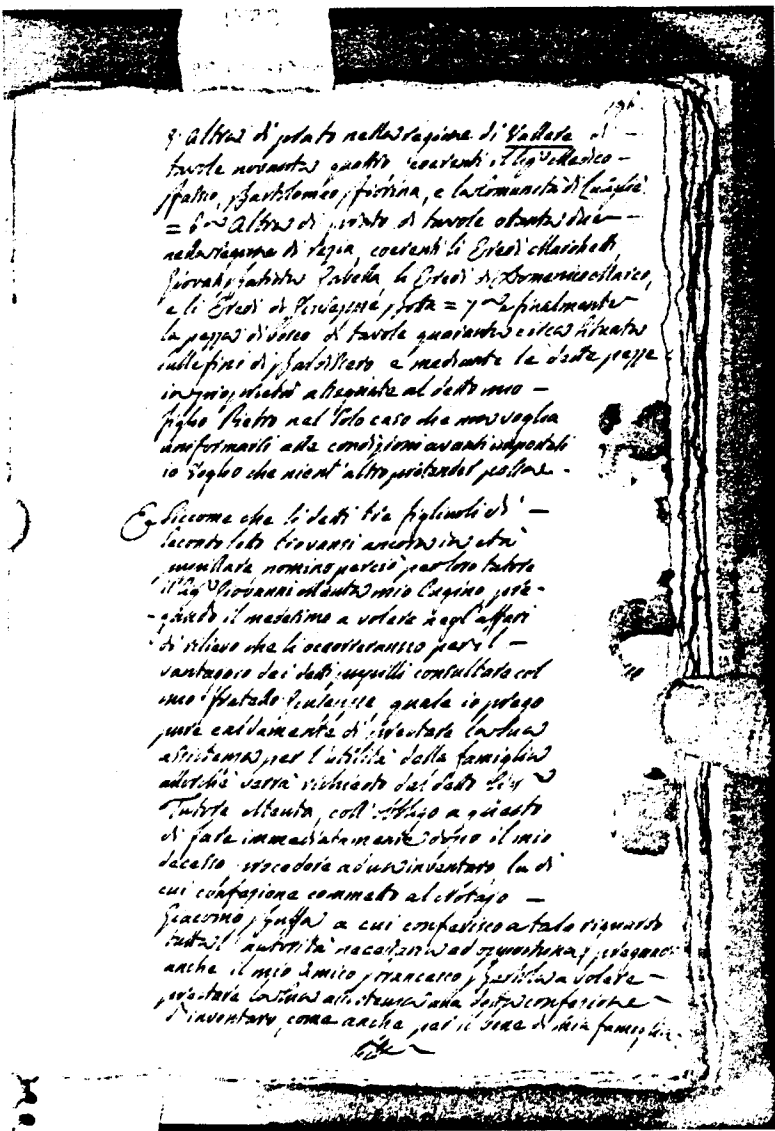 196
5 Altra di prato nella regione di Vallera di
tavole novanta quattro coerenti il Sigr Medico
Bartolomeo Fiorina, e la Comunità di
= 6a Altra di prato di tavole otanta due
nella regione di coerenti li Eredi Marchetti
Giovan Batista Zabella, li Eredi di Domenico Marco,
e li Eredi di Giuseppe = 7a e finalmente
la pezza di bosco di tavole quaranta circa situata
sulle fini di e mediante le dette pezze
in proprietà assegnate al detto mio
figlio Pietro nel solo caso che non voglia
uniformarsi alle condizioni avanti impostali
io voglio che nient'altro pretender possa.
E siccome che li detti tre figliuoli di
secondo letto trovansi ancora in età
pupillare nomino perciò per loro tutore
il Sigr Giovanni mio Cugino pre-
gando il medesimo a volere negl'affari
di rilievo che li occorreranno per il
vantaggio dei detti pupilli consultare col
mio fratello Giuseppe quale io prego
pure caldamente di prestare la sua
assistenza per l'utilità della famiglia
allorché verrà richiesto dal detto Sigr
Tutore coll'obbligo a questo
di fare immediatamente dopo il mio
decesso procedere ad un inventaro, la di
cui confezione commetto al Notajo
Giacomo a cui conferisco a tale riguardo
tutta l'autorità necessaria ad opportuna, pregando
anche il mio Amico Francesco a volere
prestare la sua assistenza alla detta confezione
d'inventaro, come anche per il bene di mia famiglia.